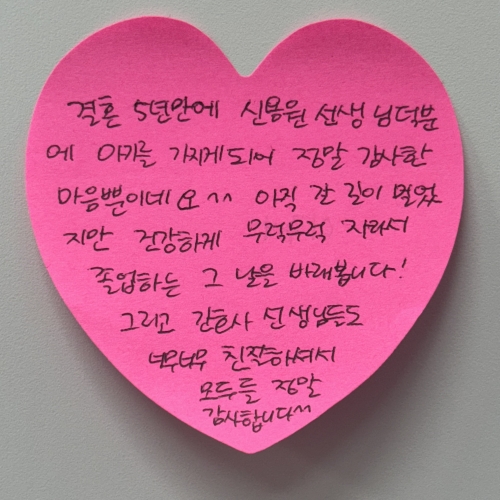 결혼 5년만에 신용원 선생님덕분
에 아기를 가지게되어 정말 감사한
마음뿐이네요^^ 아직 갈 길이 멀었
지만 건강하게 무럭무럭 자라서
졸업하는 그 날을 바래봅니다!
그리고 간호사 선생님들도
너무너무 친절하셔서
모두들 정말
감사합니다^^